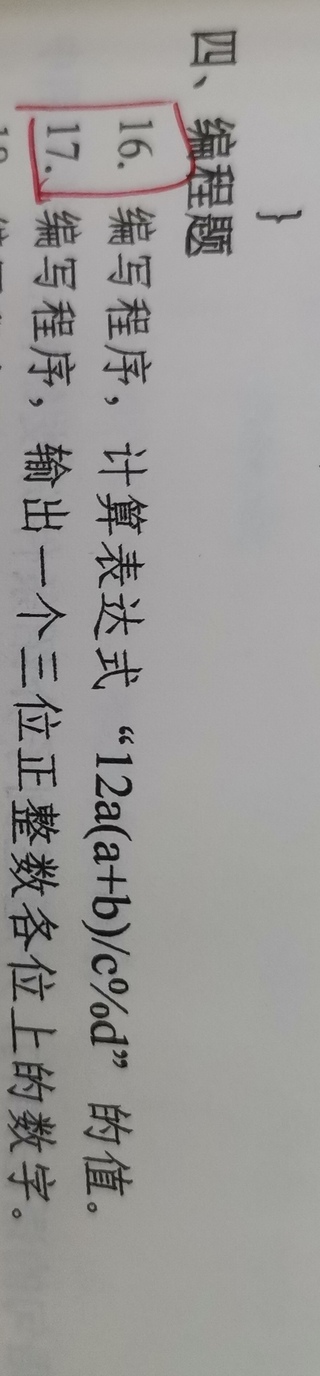 }
四、编程题
16. 编写程序，计算表达式“12a(a+b)/c%d”的值。
17. 编写程序，输出一个三位正整数各位上的数字。